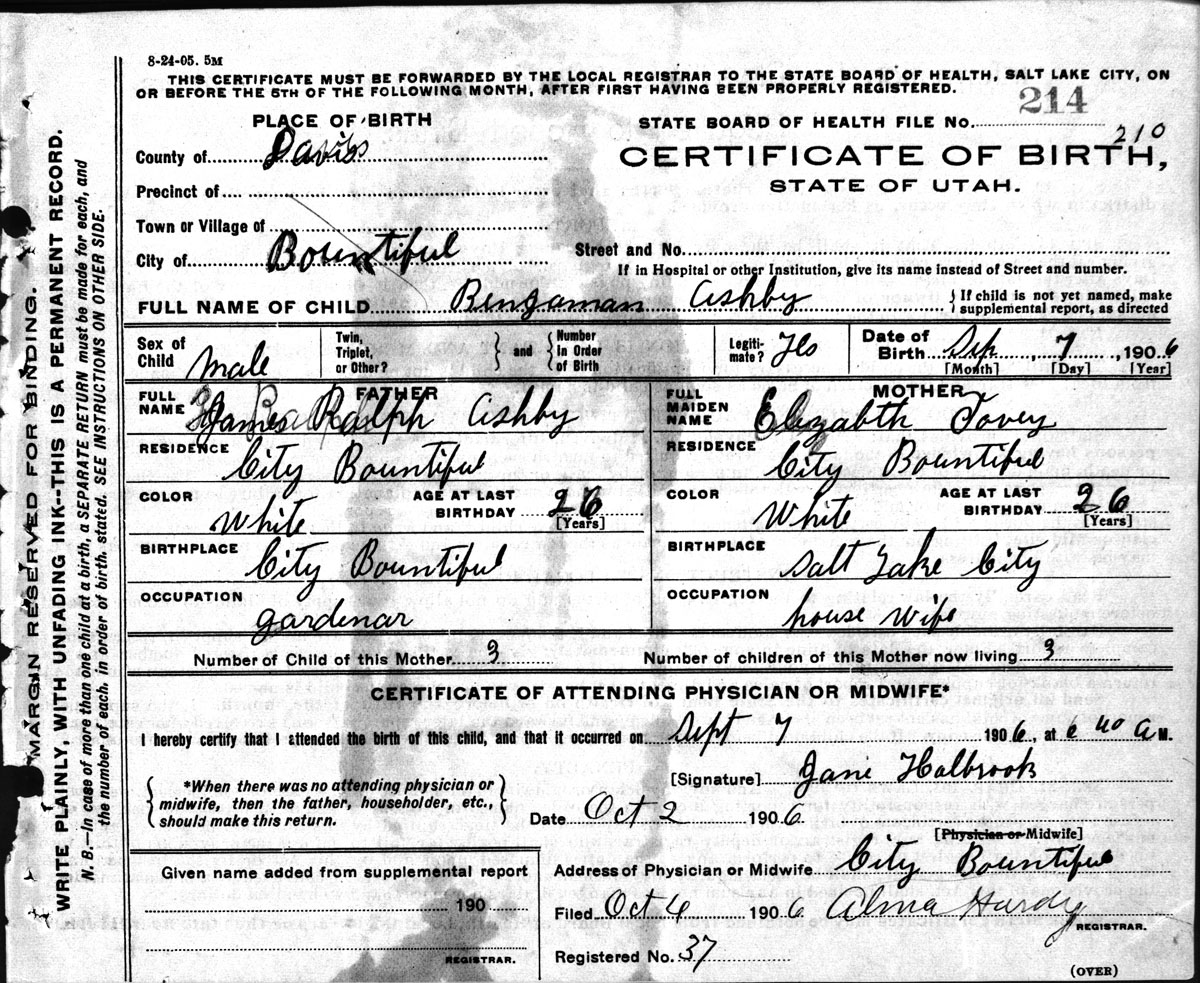 8-24-05. 5M
THIS CERTIFICATE MUST BE FORWARDED BY THE LOCAL REGISTRAR TO THE STATE BOARD OF HEALTH, SALT LAKE CITY, ON
OR BEFORE THE 5TH OF THE FOLLOWING MONTH, AFTER FIRST HAVING BEEN PROPERLY REGISTERED.
PLACE OF BIRTH
STATE BOARD OF HEALTH FILE No. 214
210
County of Davis
CERTIFICATE OF BIRTH,
STATE OF UTAH.
Precinct of
Town or Village of
City of Bountiful
Street and No.
If in Hospital or other Institution, give its name instead of Street and number.
FULL NAME OF CHILD Bengaman Ashby
If child is not yet named, make
supplemental report, as directed
Sex of Child Male
Twin, Triplet, or Other?
and
Number in Order of Birth
Legiti-mate? Yes
Date of Birth Sep, 7, 1906
[Month] [Day] [Year]
FATHER
FULL NAME James Ralph Ashby
MOTHER
FULL MAIDEN NAME Elizabth Tovey
RESIDENCE City Bountiful
RESIDENCE City Bountiful
COLOR White
AGE AT LAST BIRTHDAY 26
[Years]
COLOR White
AGE AT LAST BIRTHDAY 26
[Years]
BIRTHPLACE City Bountiful
BIRTHPLACE Salt Lake City
OCCUPATION gardinar
OCCUPATION house wife
Number of Child of this Mother 3
Number of children of this Mother now living 3
CERTIFICATE OF ATTENDING PHYSICIAN OR MIDWIFE*
I hereby certify that I attended the birth of this child, and that it occurred on Sept 7 1906, at 40 A M.
*When there was no attending physician or
midwife, then the father, householder, etc.,
should make this return.
[Signature] Jane Holbrook
Date Oct 2 1906
[Physician or Midwife]
Given name added from supplemental report
190
REGISTRAR.
Address of Physician or Midwife City Bountiful
Filed Oct 4 1906 Alma Hardy
REGISTRAR.
Registered No. 37
(OVER)
MARGIN RESERVED FOR BINDING.
WRITE PLAINLY, WITH UNFADING INK--THIS IS A PERMANENT RECORD.
N. B.—In case of more than one child at a birth, a SEPARATE RETURN must be made for each, and
the number of each, in order of birth, stated. SEE INSTRUCTIONS ON OTHER SIDE.